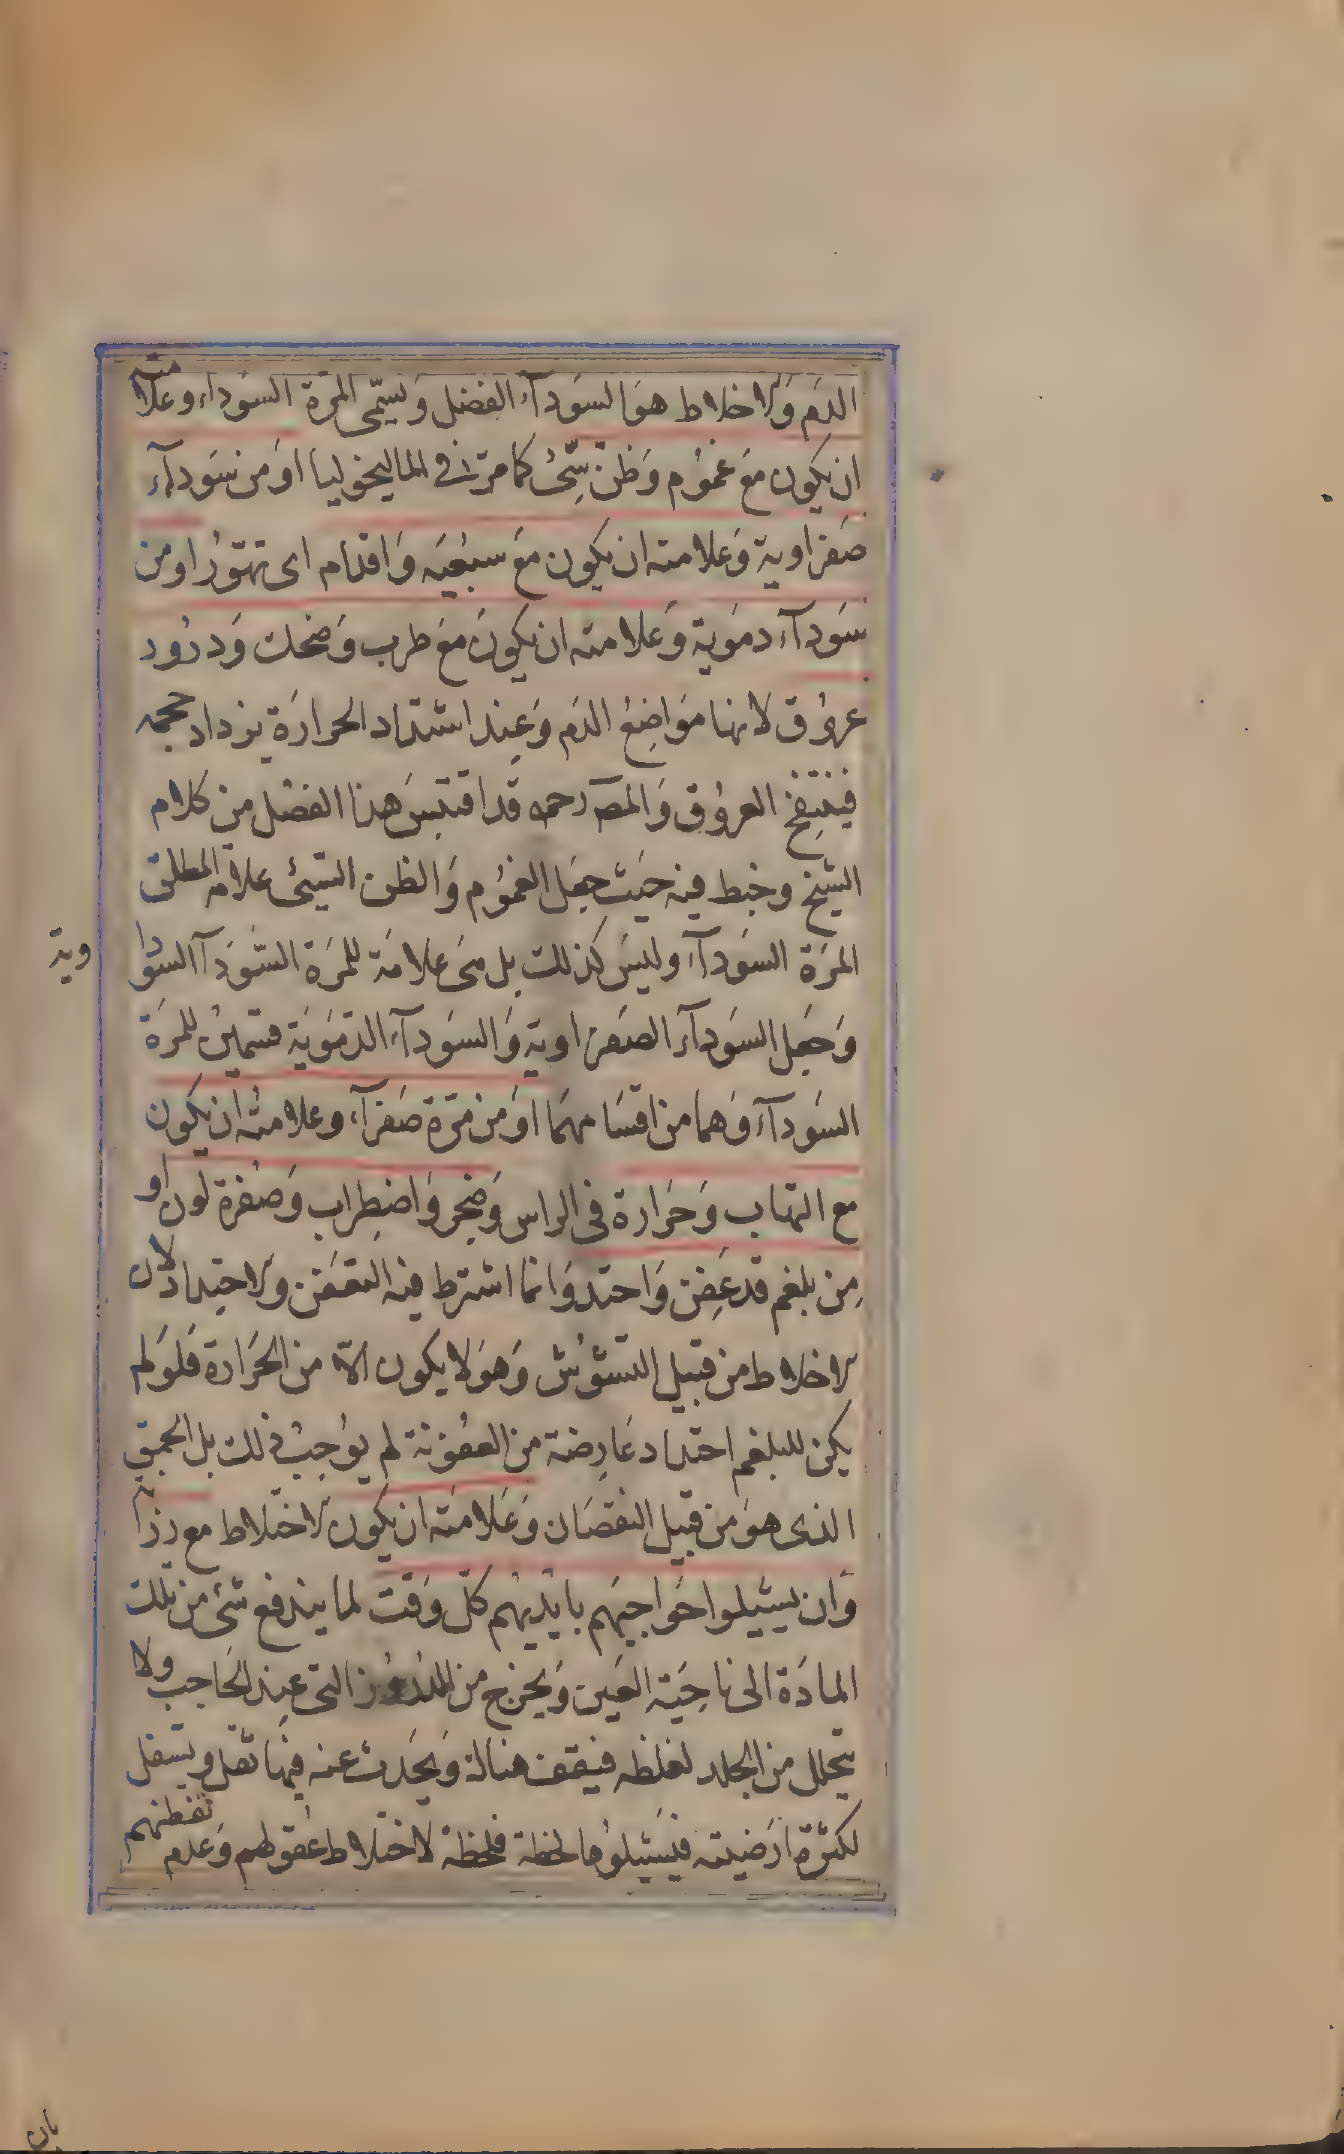 الدم والاخلاط هو السودآء الفضل وتسمى المرة السوداء وعلامته
ان يكون مع غموم وظن سيّئ كما مرّ في الماليخوليا او من سودآء
صفراوية وعلامته ان يكون مع سبعيه واقدام اى تهوّر او من
سودآء دموية وعلامته ان يكون مع طرب وضحك ودرور
عروق لانها مواضع الدم وعند اشتداد الحرارة يزداد حجمه
فينتفخ العروق والمصـ رحمه قد اقتبس هذا الفصل من كلام
الشيخ وخبط فيه حيث جعل الغموم والظن السيئ علامة لمطلق
المرة السودآء وليس كذلك بل هى علامة للمرة السودآ السودا
وية
وجعل السودآء الصفراوية والسودآء الدموية قسمين للمرة
السودآء وهما من اقسامهما او من مرّة صفرآء وعلامته ان يكون
مع التهاب وحرارة فى الراس وضجر واضطراب وصفرة لون او
من بلغم قد عفن واحتد وانما اشترط فيه التعفن والاحتداد لان
الاخلاط من قبيل التشوّش وهو لا يكون الّا من الحرارة فلو لم
يكن للبلغم احتداد عارضة من العفونة لم يوجب ذلك بل الحمق
الذى هو من قبيل النقصان وعلامته ان يكون الاختلاط مع رزانة
وان يشيلوا حواجبهم بايديهم كلّ وقت لما يندفع شئ من تلك
المادة الى ناحية العين ويخرج من الدروز التى عند الحاجب ولا
يتحلل من الجلد لغلظه فيقف هناك ويحدث عنه فيها ثقل وتسفل
لكثرة ارضيته فيشيلوها لحظة فلحظة لاختلاط عقولهم وعدم تفطنهم